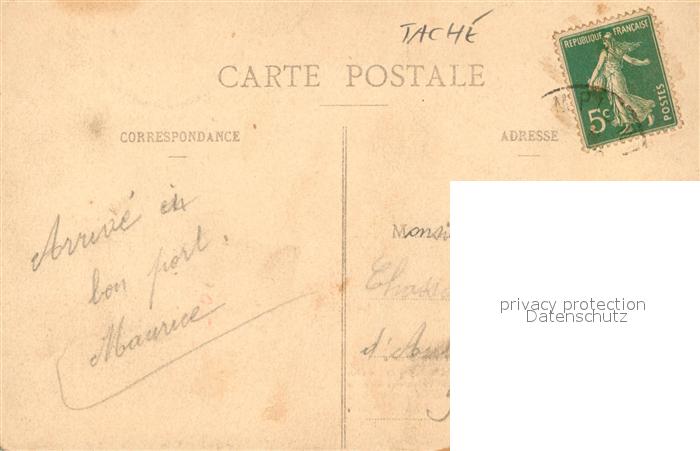 TACHÉ
CARTE POSTALE
RÉPUBLIQUE FRANÇAISE
5c
POSTES
CORRESPONDANCE
ADRESSE
Arrivé à
bon port.
Maurice
Monsi
privacy protection
Datenschutz